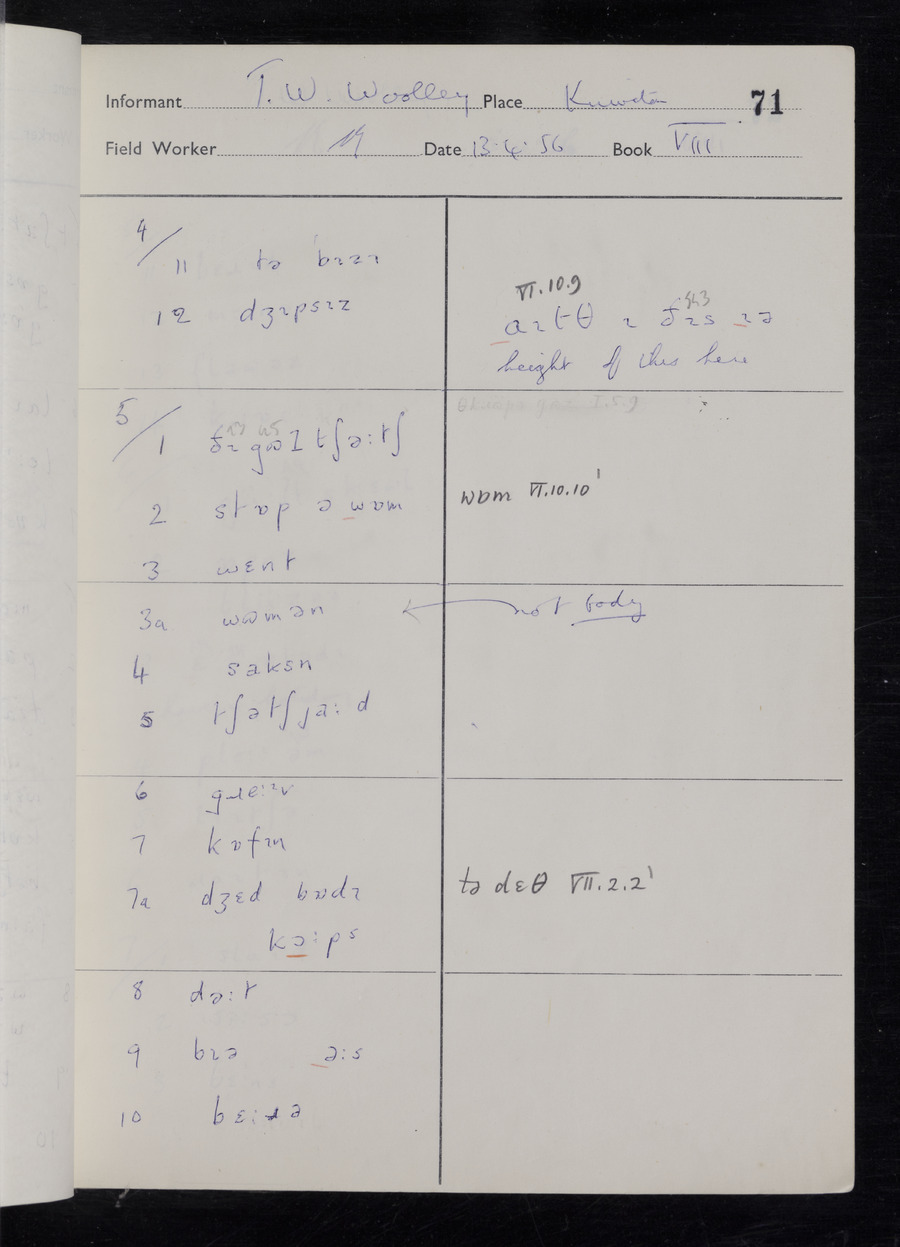 Informant T. W. Woolley Place Kniveton 71
Field Worker Date 13.4.56 Book VIII
4/
11 tə bɪzɪ
12 dʒɪpsɪz
VI.10.9
aɪtθ ɪ ðɪs ɪə
height of this here
5/
1 ðɪ gʊə I tʃəːtʃ
2 stɒp ə wɒm
3 wɛnt
wɒm VI.10.10¹
3a wʊmən
not body
4 sakstn
5 tʃətʃjaːd
6 gɹeːɪv
7 kɒfɪn
7a dʒɛd bɒdɪ
kəːps
tə dɛθ VII.2.2¹
8 dəːt
9 bɪə əːs
10 bɛːɹə